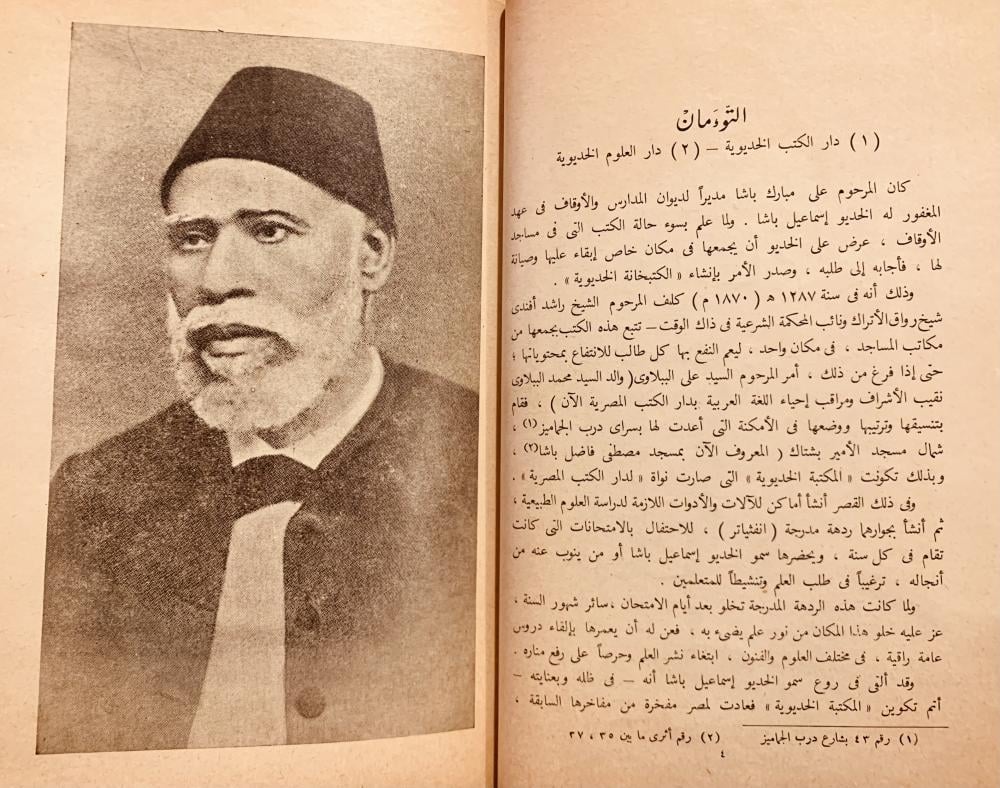 التّوءَمانْ
(١) دار الكتب الخديوية – (٢) دار العلوم الخديوية
كان المرحوم على مبارك باشا مديراً لديوان المدارس والأوقاف فى عهد
المغفور له الخديو إسماعيل باشا . ولما علم بسوء حالة الكتب التى فى مساجد
الأوقاف ، عرض على الخديو أن يجمعها فى مكان خاص إبقاء عليها وصيانة
لها ، فأجابه إلى طلبه ، وصدر الأمر بإنشاء «الكتبخانة الخديوية» .
وذلك أنه فى سنة ١٢٨٧ ه ( ١٨٧٠ م ) كلف المرحوم الشيخ راشد أفندى
شيخ رواق الأتراك ونائب المحكمة الشرعية فى ذاك الوقت – تتبع هذه الكتب بجمعها من
مكاتب المساجد ، فى مكان واحد ، ليعم النفع بها كل طالب للانتفاع بمحتوياتها ؛
حتى إذا فرغ من ذلك ، أمر المرحوم السيد على الببلاوى (والد السيد محمد الببلاوى
نقيب الأشراف ومراقب إحياء اللغة العربية بدار الكتب المصرية الآن ) ، فقام
بتنسيقها وترتيبها ووضعها فى الأمكنة التى أعدت لها بسراى درب الجماميز (١) ،
شمال مسجد الأمير بشتاك ( المعروف الآن بمسجد مصطفى فاضل باشا (٢) ،
وبذلك تكونت «المكتبة الخديوية» التى صارت نواة «لدار الكتب المصرية» .
وفى ذلك القصر أنشأ أماكن للآلات والأدوات اللازمة لدراسة العلوم الطبيعية ،
ثم أنشأ بجوارهما ردهة مدرجة ( انفثياتر ) ، للاحتفال بالامتحانات التى كانت
تقام فى كل سنة ، ويحضرها سمو الخديو إسماعيل باشا أو من ينوب عنه من
أنجاله ، ترغيباً فى طلب العلم وتنشيطاً للمتعلمين .
ولما كانت هذه الردهة المدرجة تخلو بعد أيام الامتحان ، سائر شهور السنة ،
عز عليه خلو هذا المكان من نور علم يضىء به ، فعن له أن يعمرها بإلقاء دروس
عامة راقية ، فى مختلف العلوم والفنون ، ابتغاء نشر العلم وحرصاً على رفع مناره .
وقد ألقى فى روع سمو الخديو إسماعيل باشا أنه – فى ظله وبعنايته –
أتم تكوين «المكتبة الخديوية» فعادت لمصر مفخرة من مفاخرها السابقة ،
(١) رقم ٤٣ بشارع درب الجماميز (٢) رقم أثرى ما بين ٣٥ ، ٣٧
٤